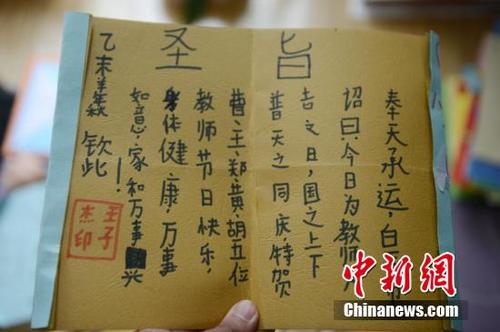 圣旨
奉天,承运,白
诏曰:今日为教师
吉之日,国之上下
普天之同庆,特贺
曹、王、郑、黄、胡五位
教师节日快乐,
身体健康,万事
如意,家和万事兴
!
钦此
乙未羊年秋
王子
杰印
中新网
Chinanews.com